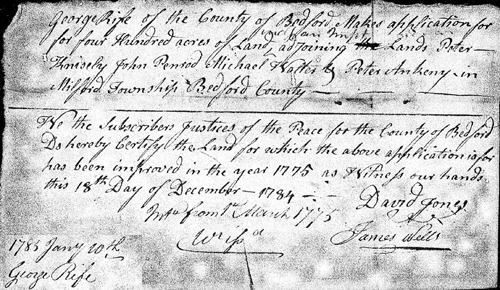 George Rife of the County of Bedford Makes application for
for four Hundred acres of Land adjoining Lands Peter
Knisely John Penrod Michael Walter & Peter Ankeny in
Milford Township Bedford County
We the Subscribers Justices of the Peace for the County of Bedford
Do hereby Certify the Land for which the above application is for
has been improved in the year 1775 as Witness our hands
this 18th Day of December 1784
David Jones
Int from 1st March 1775
James Wells
1785 Jany 10th
George Rife